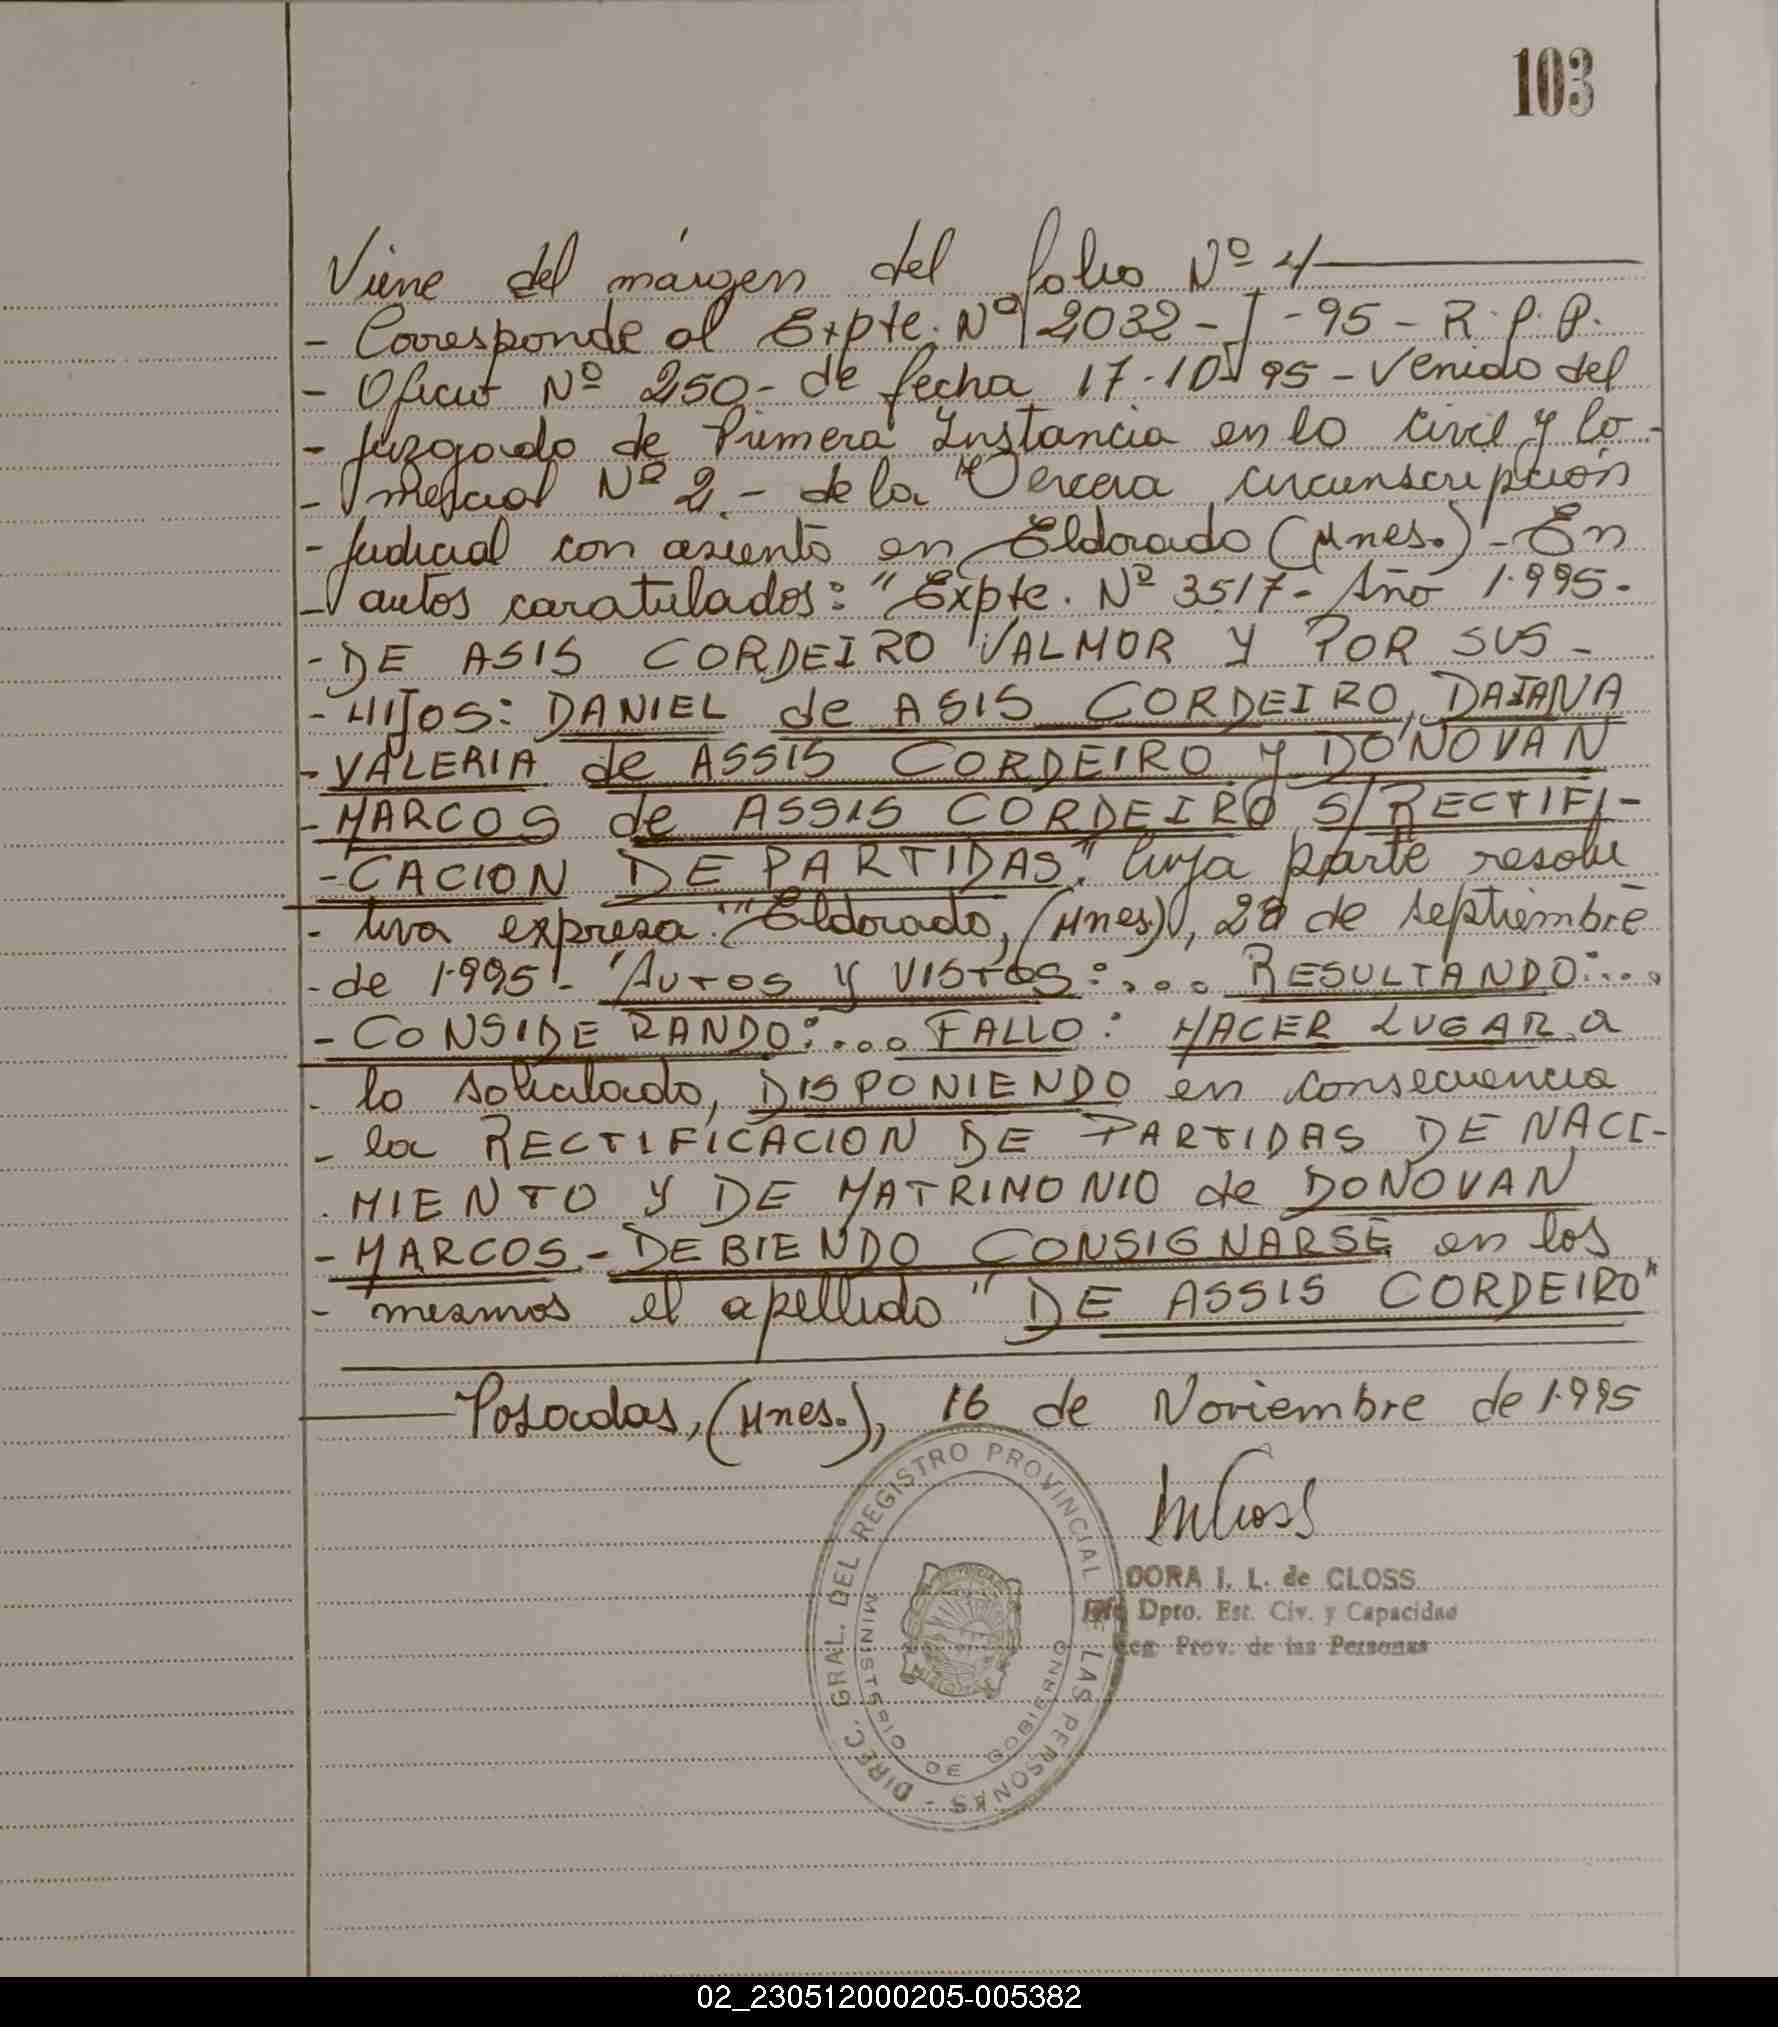 103
Viene del márgen del folio Nº 4
- Corresponde al Expte. Nº 2032 - J - 95 - R.P.P.
- Oficio Nº 250 - de fecha 17-10-95 - Venido del
- Juzgado de Primera Instancia en lo Civil y Co-
- mercial Nº 2 - de la Tercera circunscripción
- Judicial con asiento en Eldorado (Mnes.) - En
- autos caratulados: "Expte. Nº 3517 - Año 1.995 -
- DE ASIS CORDEIRO VALMOR Y POR SUS -
- HIJOS: DANIEL de ASIS CORDEIRO, DAIANA
- VALERIA de ASSIS CORDEIRO Y DONOVAN
- MARCOS de ASSIS CORDEIRO S/ RECTIFI-
- CACION DE PARTIDAS", Cuya parte resolu
- tiva expresa: "Eldorado, (Mnes.), 28 de septiembre
- de 1.995 - AUTOS Y VISTOS:... RESULTANDO:...
- CONSIDERANDO:... FALLO: HACER LUGAR a
- lo solicitado, DISPONIENDO en consecuencia
- la RECTIFICACION DE PARTIDAS DE NACI-
- MIENTO Y DE MATRIMONIO de DONOVAN
- MARCOS - DEBIENDO CONSIGNARSE en los
- mesmos el apellido "DE ASSIS CORDEIRO"
Posadas, (Mnes.), 16 de Noviembre de 1.995
DIREC. GRAL. DEL REGISTRO PROVINCIAL DE LAS PERSONAS -
MINISTERIO DE GOBIERNO
DORA I. L. de CLOSS
Dpto. Est. Civ. y Capacidad
Reg. Prov. de las Personas
02_230512000205-005382